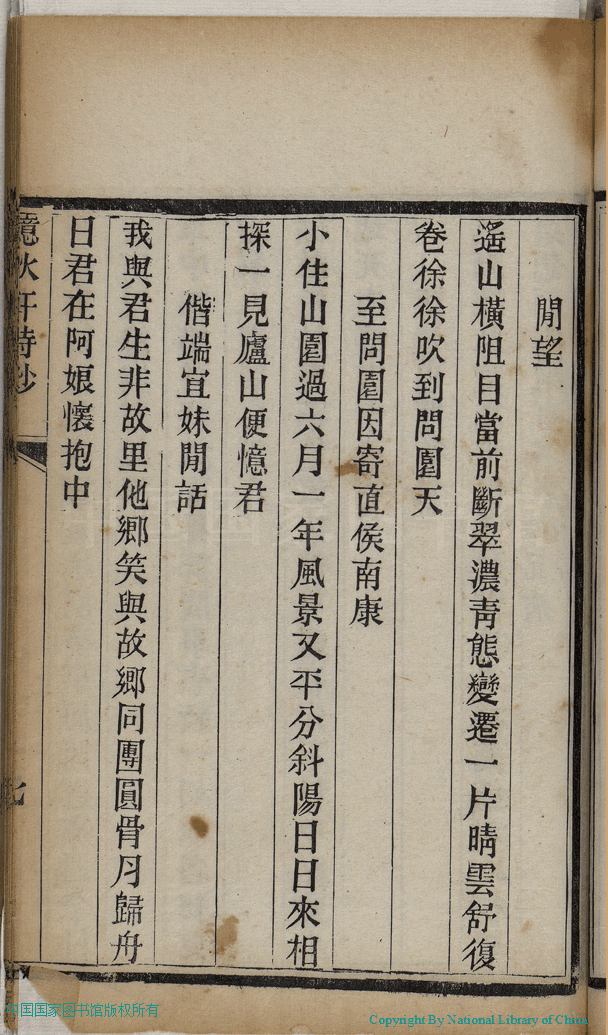 閒望
遙山橫阻目當前斷翠濃靑態變遷一片晴雲舒復
卷徐徐吹到問園天
至問園因寄直侯南康
小住山園過六月一年風景又平分斜陽日日來相
探一見廬山便憶君
偕端宜妹閒話
我與君生非故里他鄉笑與故鄉同團圓骨肉歸舟
日君在阿娘懷抱中
憶秋軒詩鈔
七
中国国家图书馆版权所有
Copyright By National Library of China